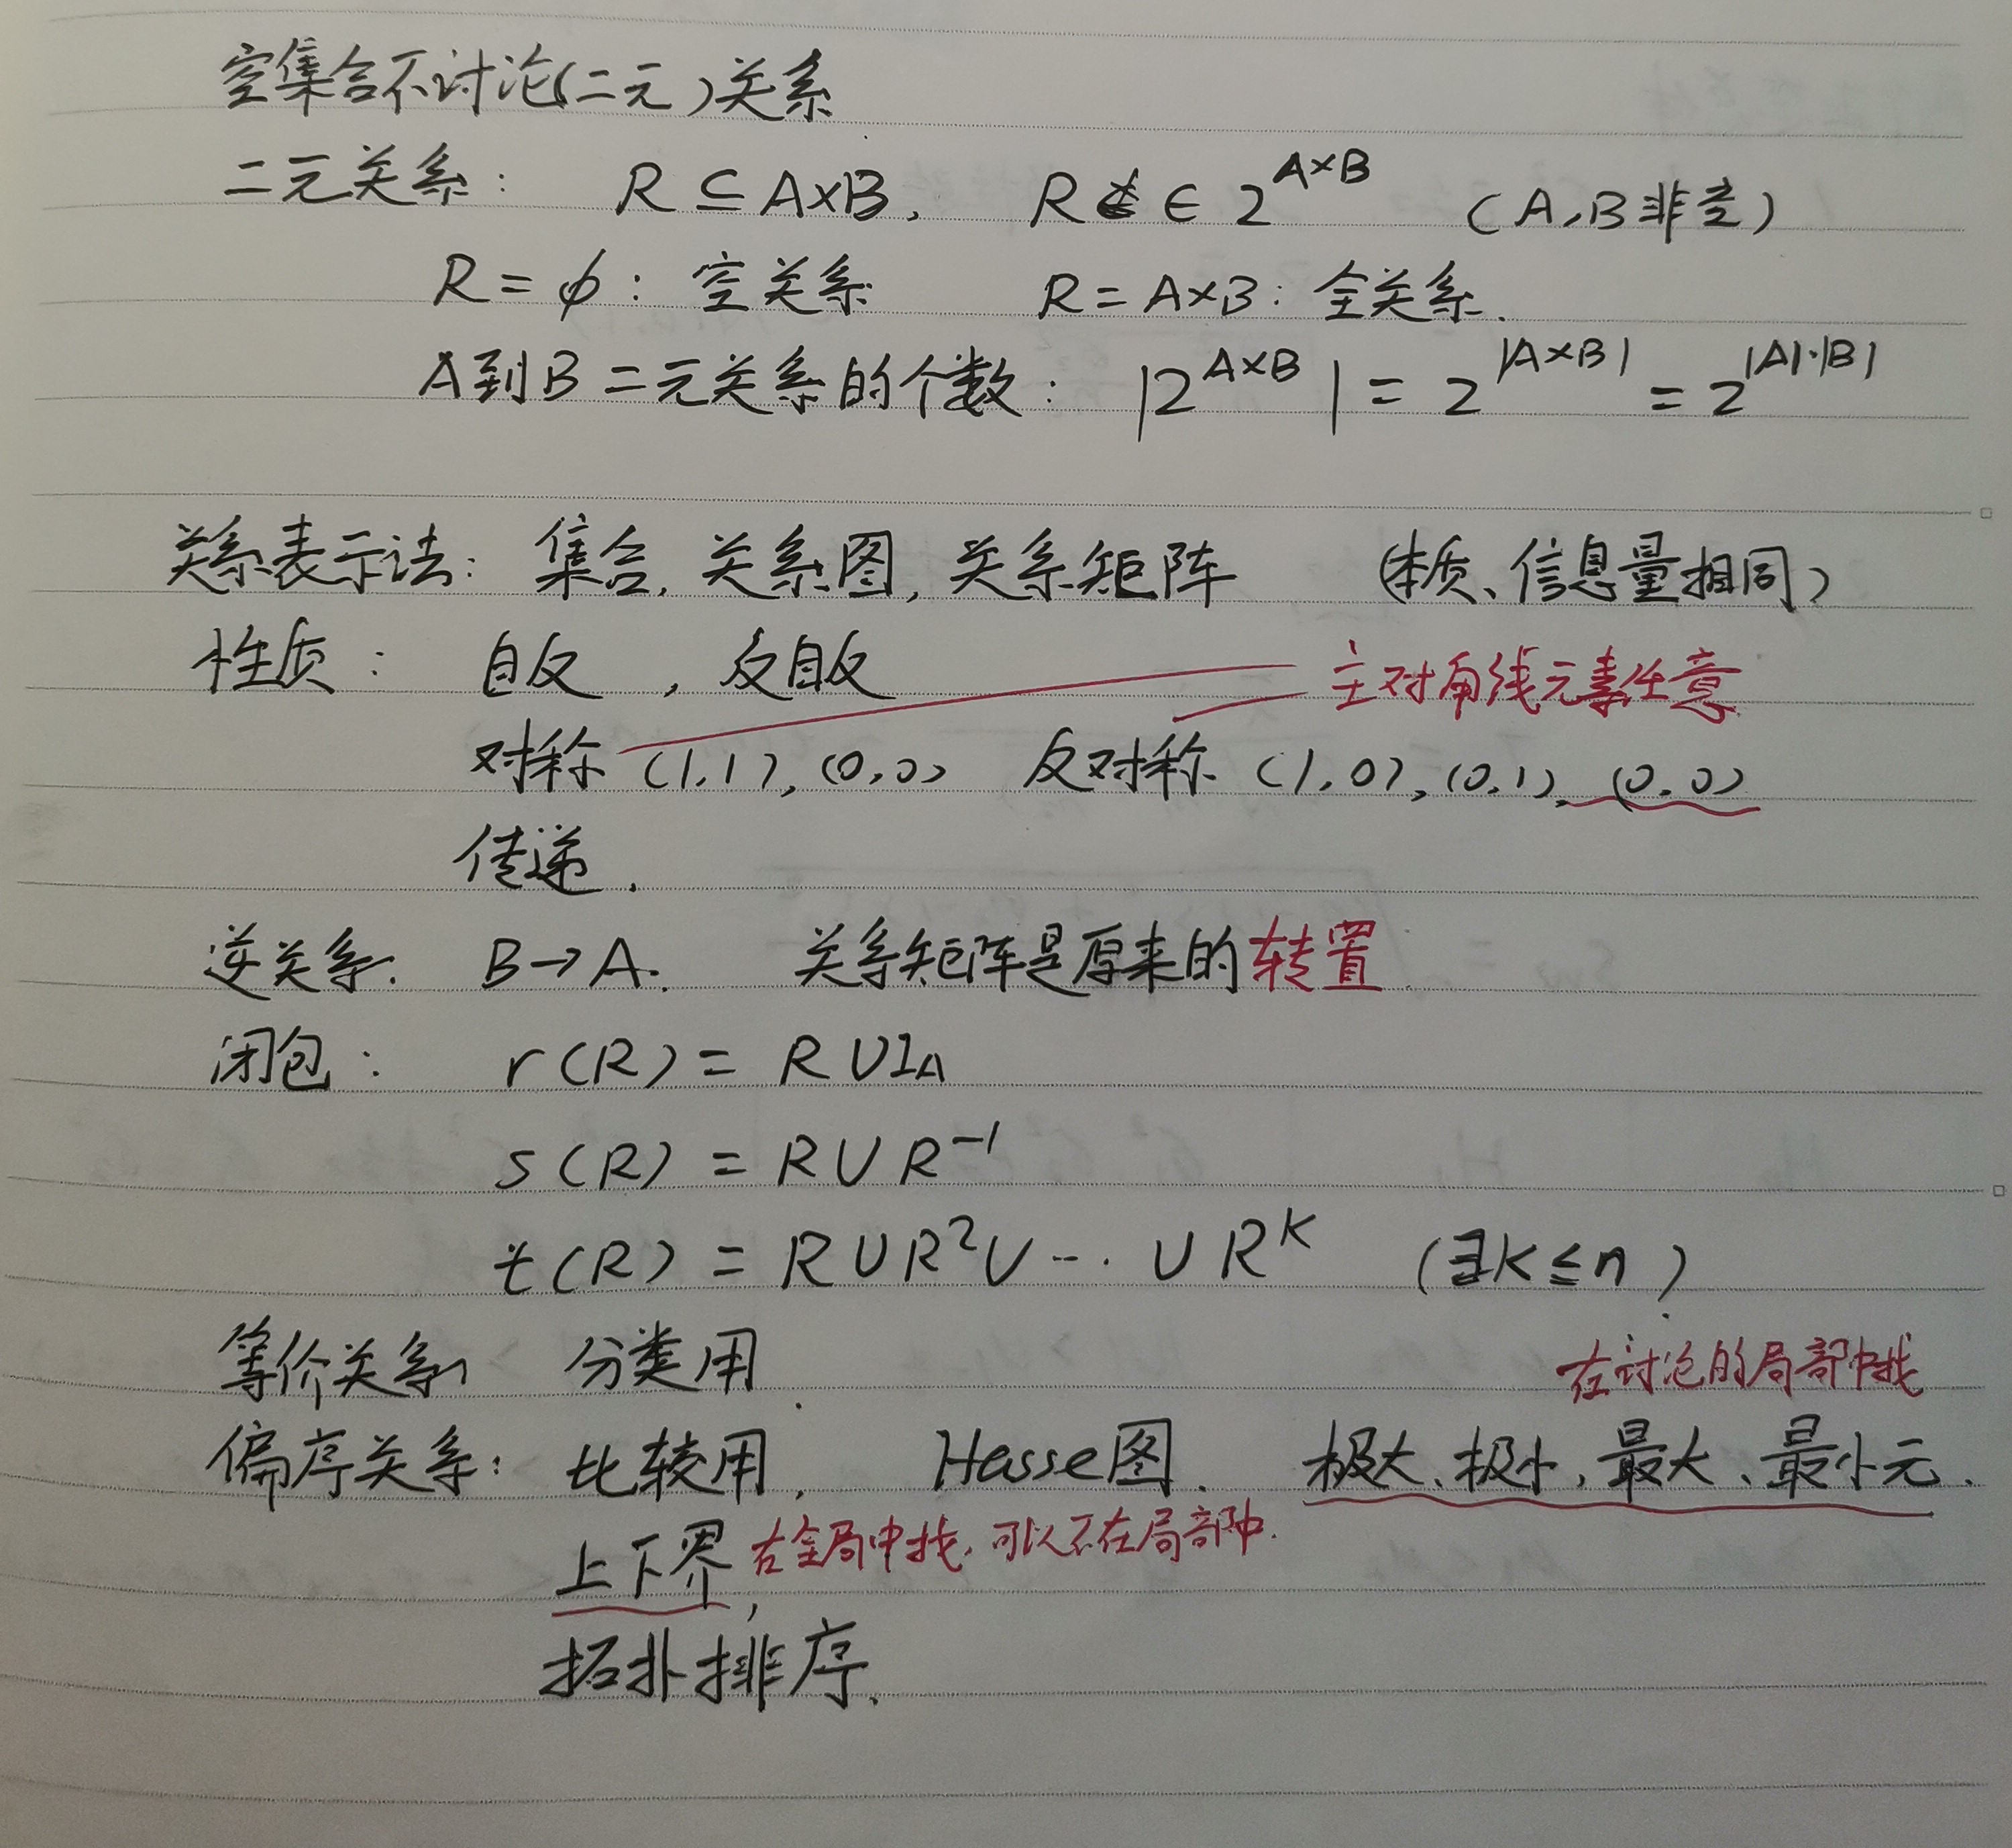 空集合不讨论(二元)关系
二元关系: R ⊆ A×B, R ∈ 2^{A×B} (A,B非空)
R = ∅: 空关系 R = A×B: 全关系.
A到B二元关系的个数: |2^{A×B}| = 2^{|A×B|} = 2^{|A|·|B|}
关系表示法: 集合, 关系图, 关系矩阵 (本质、信息量相同)
性质: 自反, 反自反 主对角线元素任意
对称 (1,1), (0,0) 反对称 (1,0), (0,1), (0,0)
传递.
逆关系. B→A. 关系矩阵是原来的转置.
闭包: r(R) = R∪I_A
s(R) = R∪R^{-1}
t(R) = R∪R^2∪…∪R^k (∃k≤n)
等价关系 分类用.
在讨论的局部中找
偏序关系: 比较用, Hasse图. 极大、极小, 最大、最小元.
上下界, 在全局中找, 可以不在局部中.
拓扑排序.